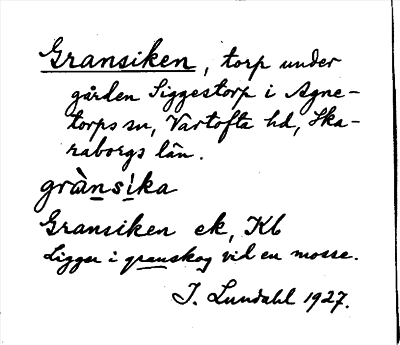 Gransiken, torp under
gården Siggestorp i Agne-
torps sn, Vartofta hd, Ska-
raborgs län.
grànsika
Gransiken ek, Kb
Ligger i granskog vil en mosse.
J. Lundahl 1927.